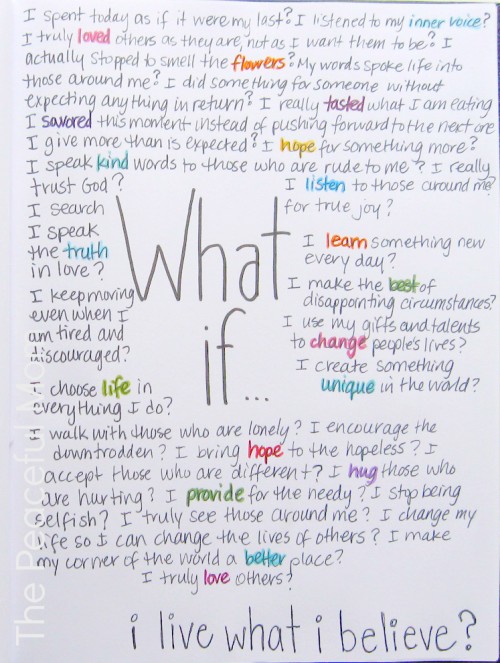 I spent today as if it were my last? I listened to my inner voice?
I truly loved others as they are, not as I want them to be? I
actually stopped to smell the flowers? My words spoke life into
those around me? I did something for someone without
expecting anything in return? I really tasted what I am eating
I savored this moment instead of pushing forward to the next one
I give more than is expected? I hope for something more?
I speak kind words to those who are rude to me? I really
trust God?
I search
I speak
the truth
in love?
I keep moving
even when I
am tired and
discouraged?
I choose life in
everything I do?
What
if...
I listen to those around me?
for true joy?
I learn something new
every day?
I make the best of
disappointing circumstances?
I use my gifts and talents
to change people's lives?
I create something
unique in the world?
I walk with those who are lonely? I encourage the
downtrodden? I bring hope to the hopeless? I
accept those who are different? I hug those who
are hurting? I provide for the needy? I stop being
selfish? I truly see those around me? I change my
life so I can change the lives of others? I make
my corner of the world a better place?
I truly love others?
i live what i believe?
The Peaceful Mom